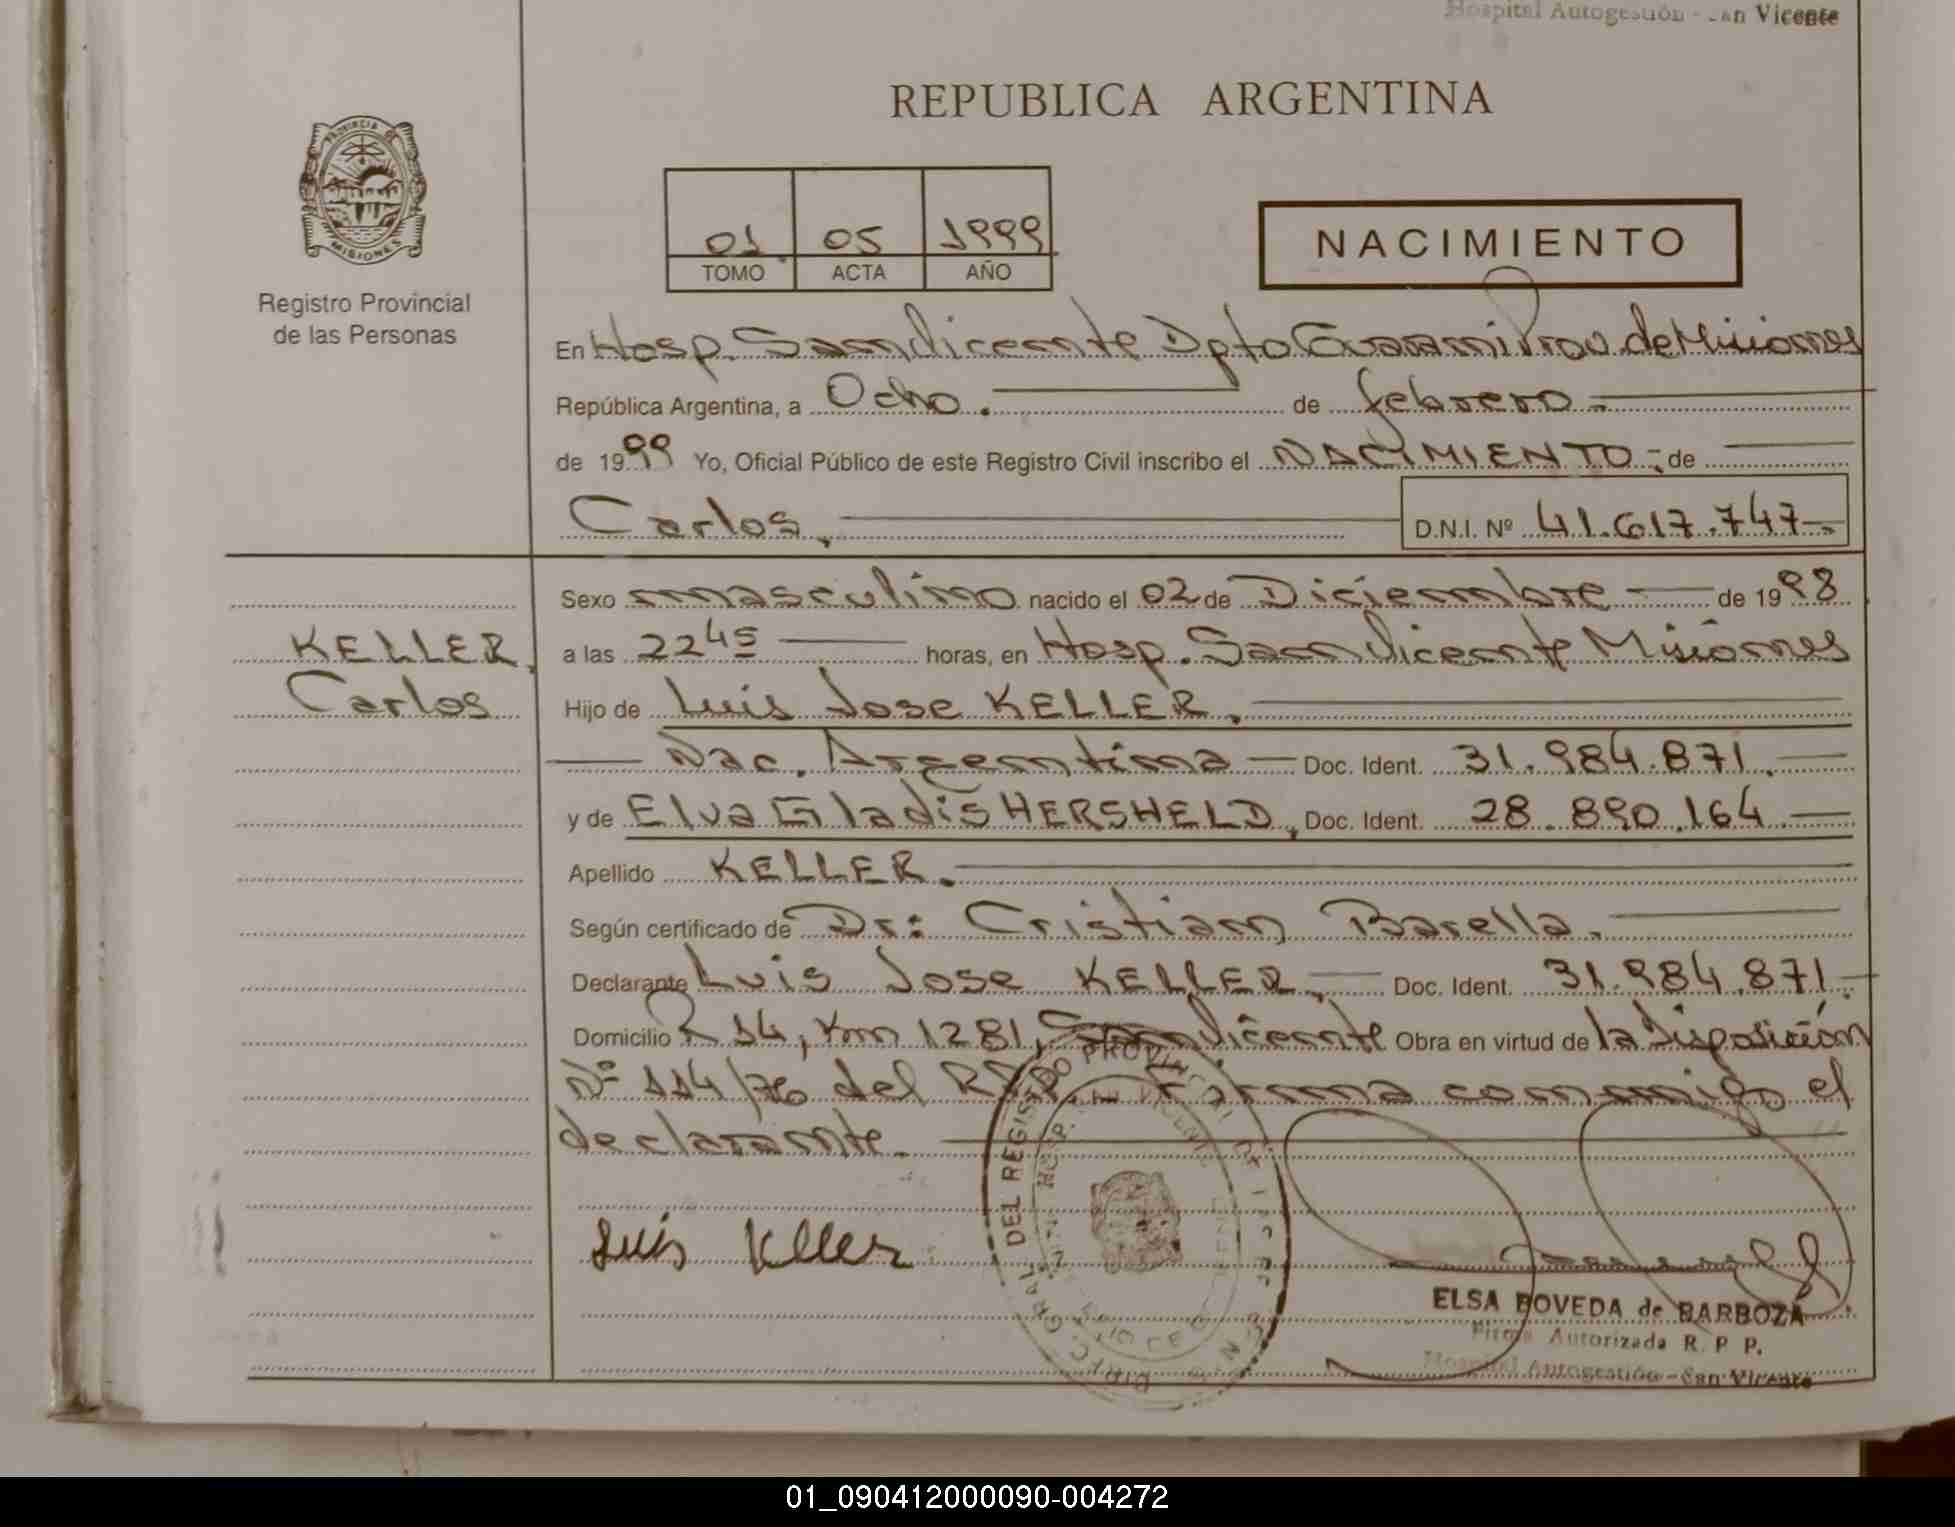 Hospital Autogestión - San Vicente
REPUBLICA ARGENTINA
PROVINCIA DE
MISIONES
Registro Provincial
de las Personas
01 05 1999
TOMO ACTA AÑO
NACIMIENTO
En Hosp. San Vicente Dpto Guarani Prov. de Misiones
República Argentina, a Ocho. de febrero
de 1999 Yo, Oficial Público de este Registro Civil inscribo el NACIMIENTO; de
Carlos, D.N.I. Nº 41.617.747
Sexo masculino nacido el 02 de Diciembre de 1998
KELLER, a las 22 45 horas, en Hosp. San Vicente Misiones
Carlos Hijo de Luis Jose KELLER.
Nac. Argentina Doc. Ident. 31.984.871.
y de Elva Gladis HERSHELD, Doc. Ident. 28.890.164
Apellido KELLER.
Según certificado de Dr: Cristian Barella.
Declarante Luis Jose KELLER, Doc. Ident. 31.984.871.
Domicilio R 14, Km 1281, San Vicente Obra en virtud de la Disposición
Nº 114/76 del R.P.P. Firma conmigo el
declarante.
DIREC. GRAL. DEL REGISTRO PROVINCIAL DE
Luis Keller
ELSA BOVEDA de BARBOZA
Firma Autorizada R. P P.
Hospital Autogestión - San Vicente
01_090412000090-004272